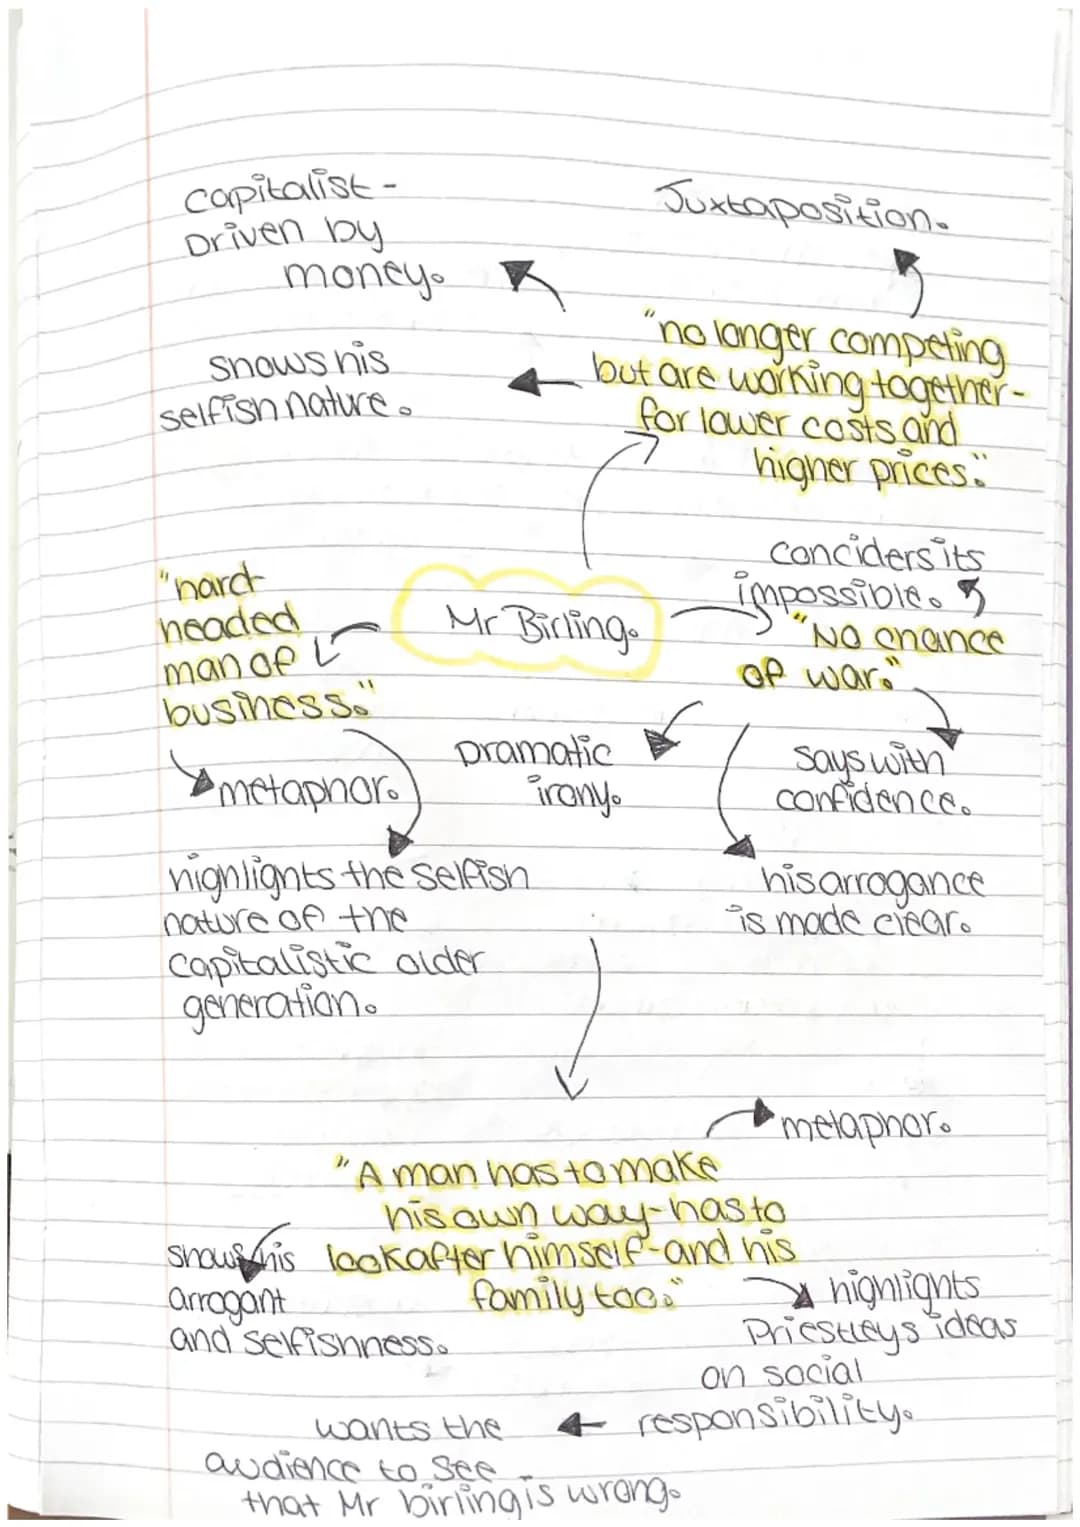 Capitalist-
Driven by
money.
Juxtaposition.
"no longer competing
but are working together-
for lower costs and
higher prices."
shows his
selfish nature.
concider s its
impossible.
"No chance
of war."
Mr Birling.
"hard
headed
man of
business."
metaphor.
Dramatic
irony.
says with
confidence.
highlights the selfish
nature of the
capitalistic older
generation.
his arrogance
is made clear.
metaphor.
"A man has to make
his own way-has to
look after himself-and his
family too."
shows his
arrogant
and selfishness.
highlights
Priestleys ideas
on social
responsibility.
wants the
audience to see
that Mr birling is wrong.